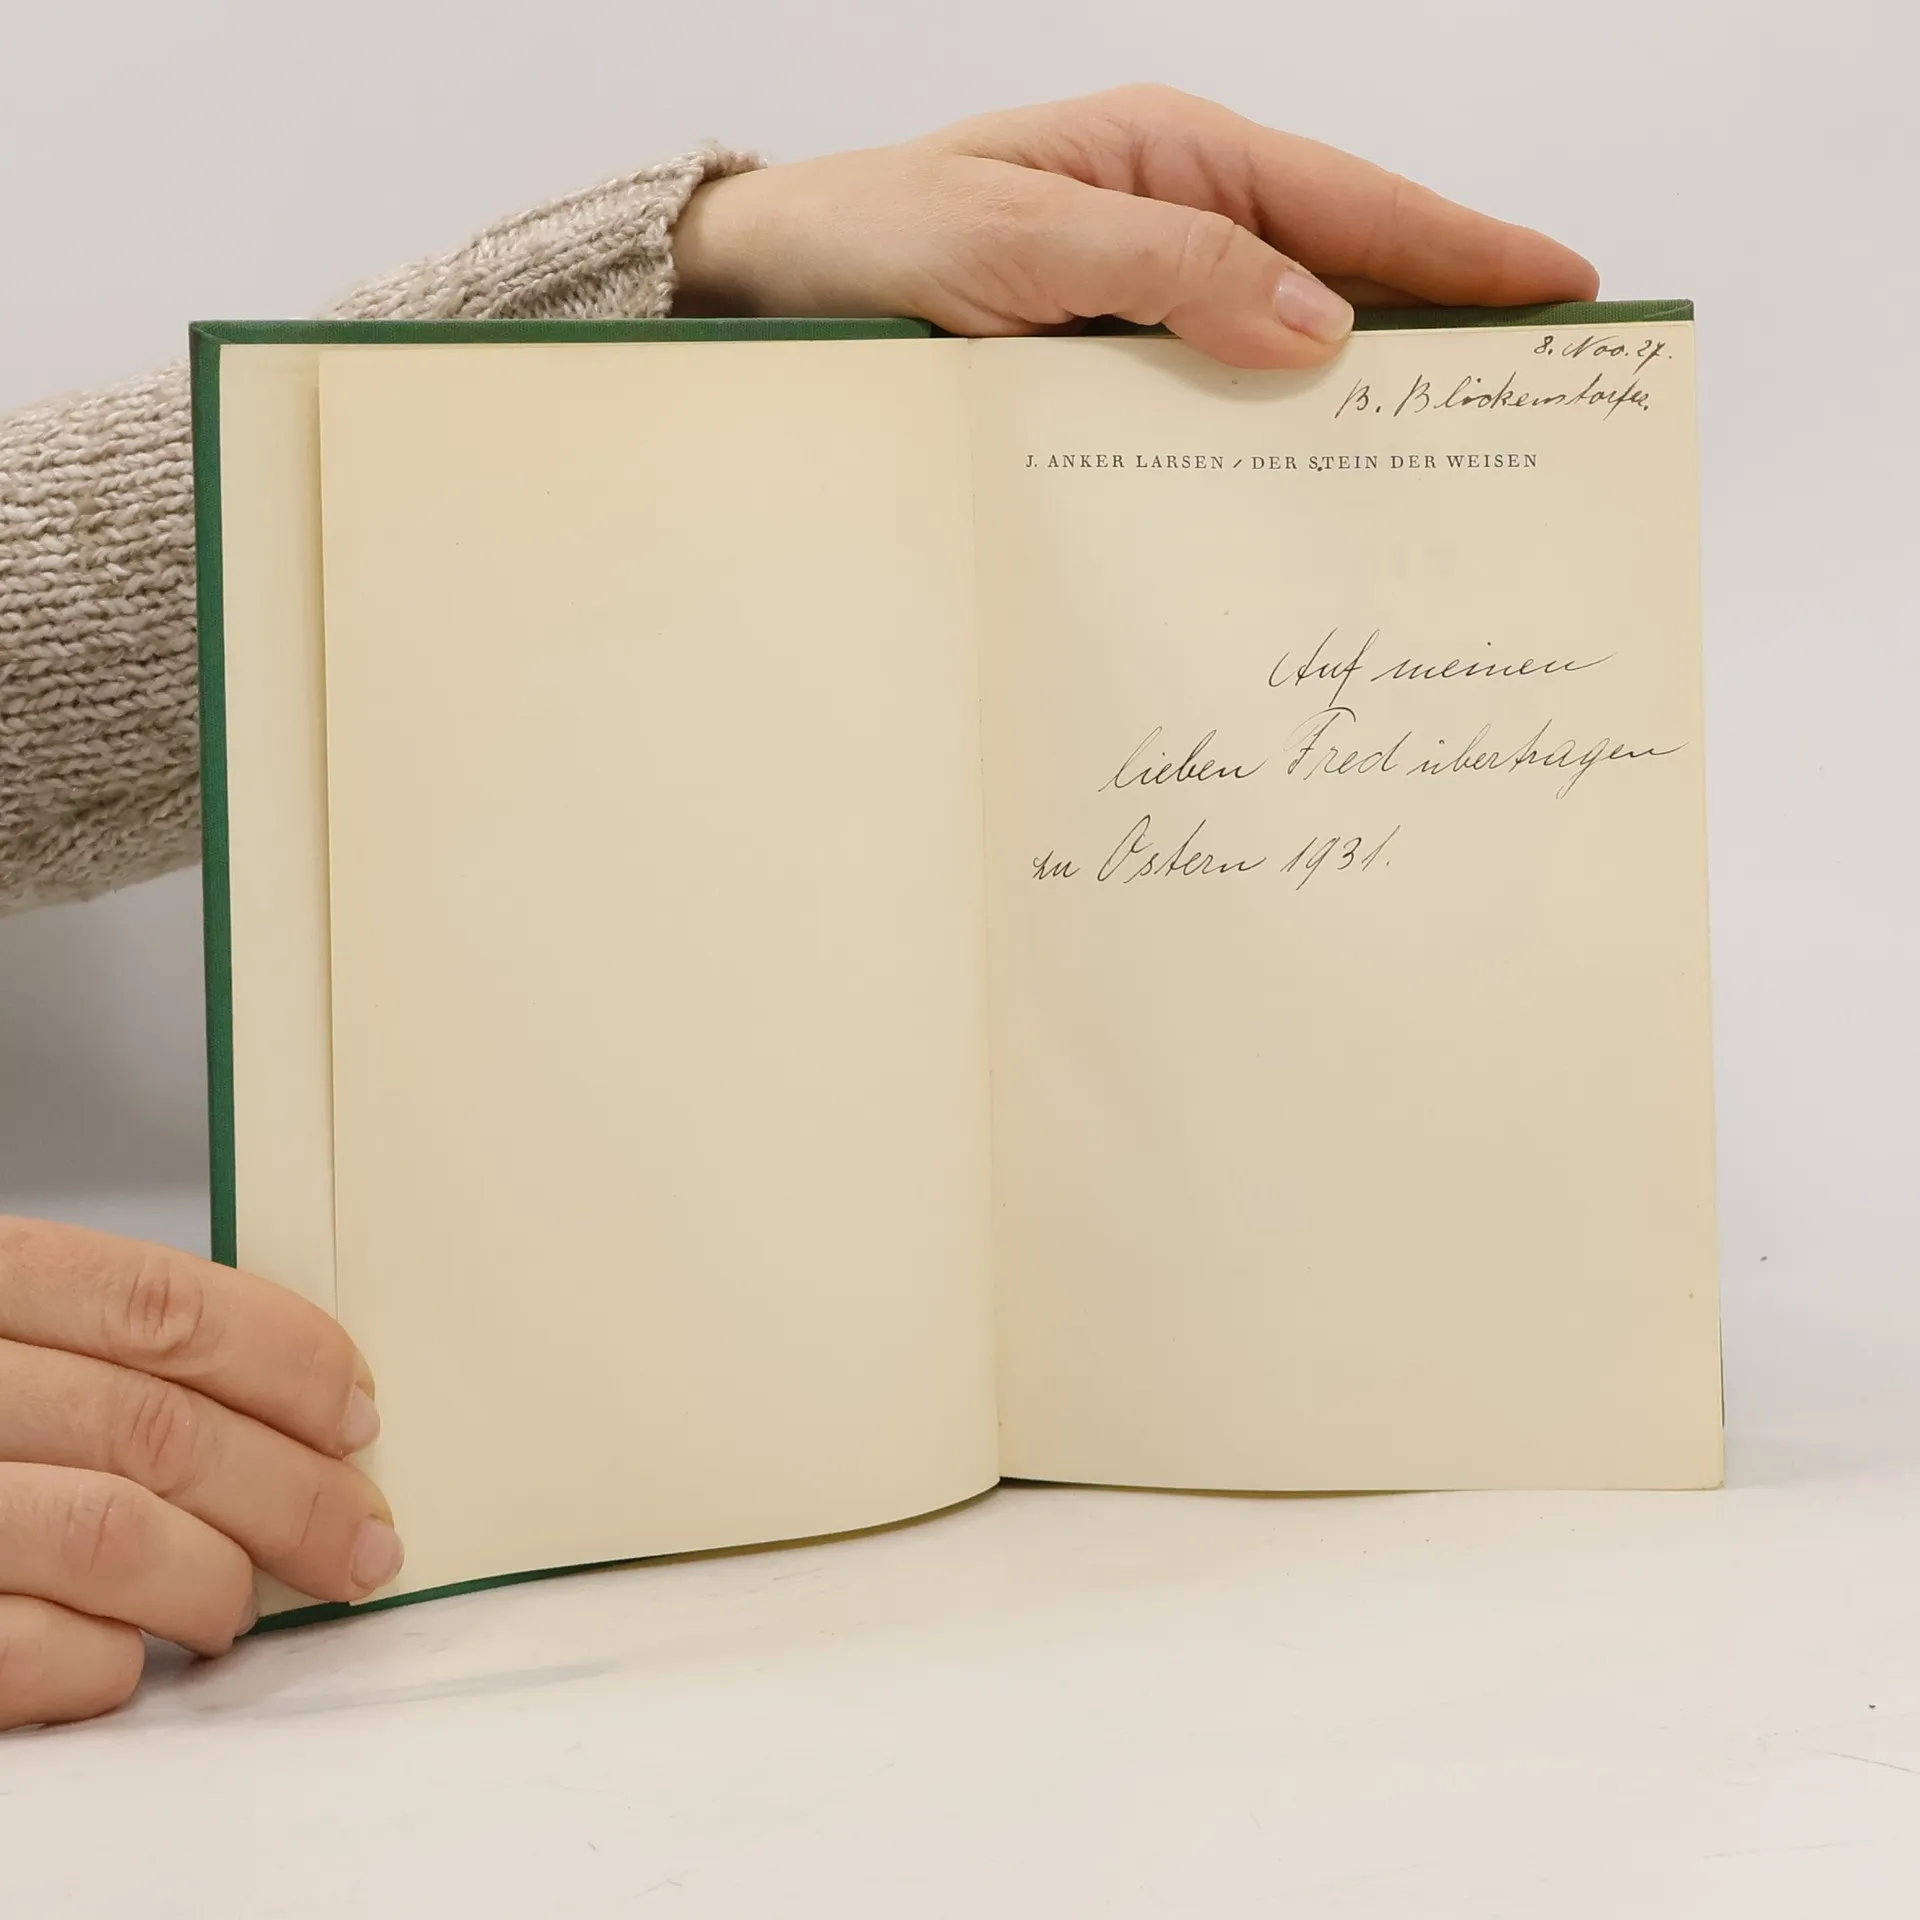 8. Nov. 27.
B. Blickenstorfer.
J. ANKER LARSEN / DER STEIN DER WEISEN
Auf meinen
lieben Fred übertragen
zu Ostern 1931.